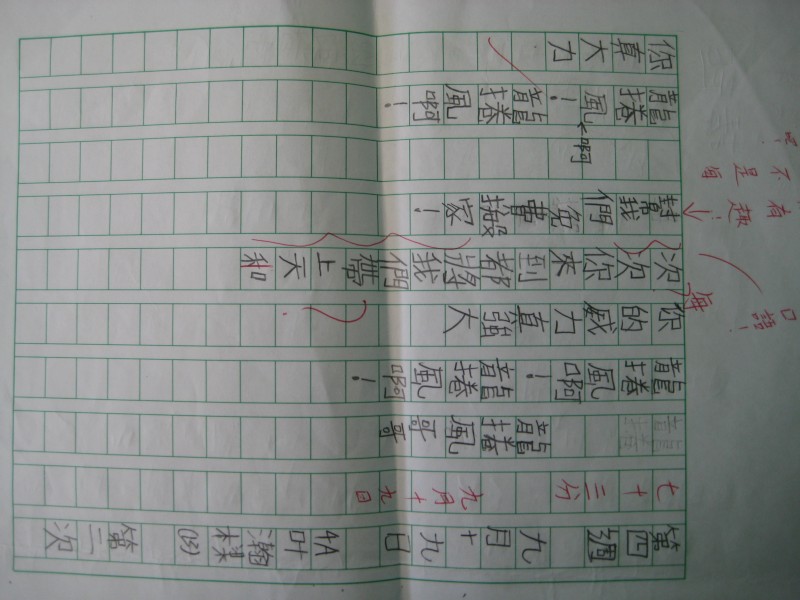 第四週 九月十九日 4A 叶瀚棋 第二次
七十三分 九月十九日
龍捲風哥哥
龍捲風啊！龍捲風啊！
你的威力真強大
每
口語！
次次你來到都將我們帶上天和
？
幫我們免費搬家！
有趣！
不是自
龍捲風啊！龍捲風啊！
你真大力